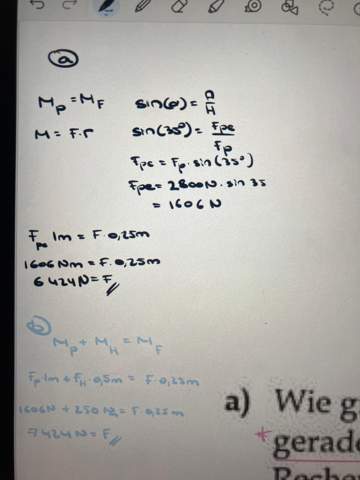 a
M_P = M_F
sin(φ) = a/H
M = F·r
sin(35°) = F_PE/F_P
F_PE = F_P · sin(35°)
F_PE = 2800N · sin 35
= 1606 N
1m = F · 0,25m
1606 Nm = F · 0,25m
6424N = F
b
M_P + M_H = M_F
F_P 1m + F_H · 0,5m = F · 0,25m
1606N + 250 = F · 0,25m
7424N = F
a) Wie g
* gerade
Reche